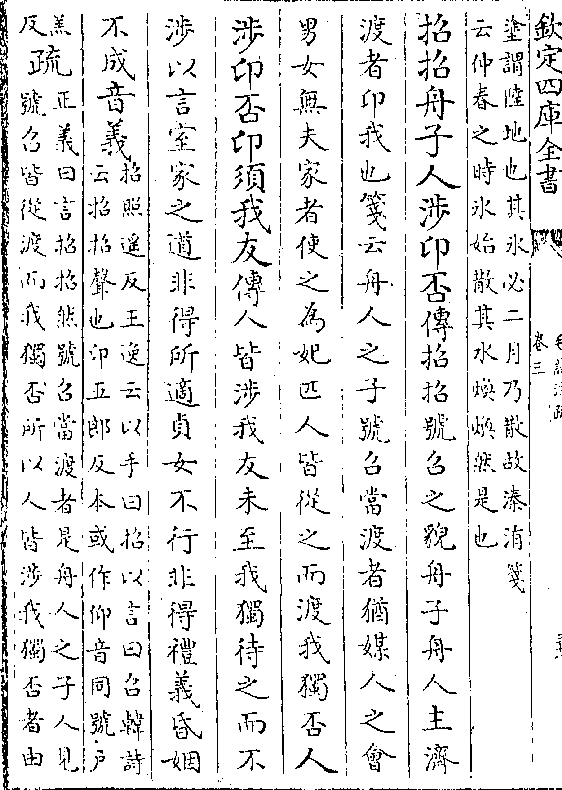 欽定四庫全書
卷三
塗謂陸地也其氷必二月乃散故溱洧箋
云仲春之時氷始散其水煥煥然是也
招招舟子人涉卬否傳招招號召之貌舟子舟人主濟
渡者卬我也箋云舟人之子號召當渡者猶媒人之會
男女無夫家者使之為妃匹人皆從之而渡我獨否人
涉卬否卬須我友傳人皆涉我友未至我獨待之而不
涉以言室家之道非得所適貞女不行非得禮義昏姻
不成音義招照遙反王逸云以手曰招以言曰召韓詩
云招招聲也卬五郎反本或作仰音同號户
羔反疏正義曰言招招然號召當渡者是舟人之子人見
號召皆從渡而我獨否所以人皆涉我獨否者由